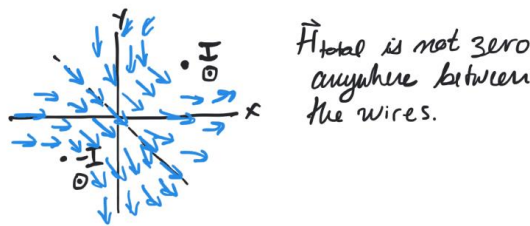 Y
I
H⃗total is not zero
anywhere between
the wires.
X
-I